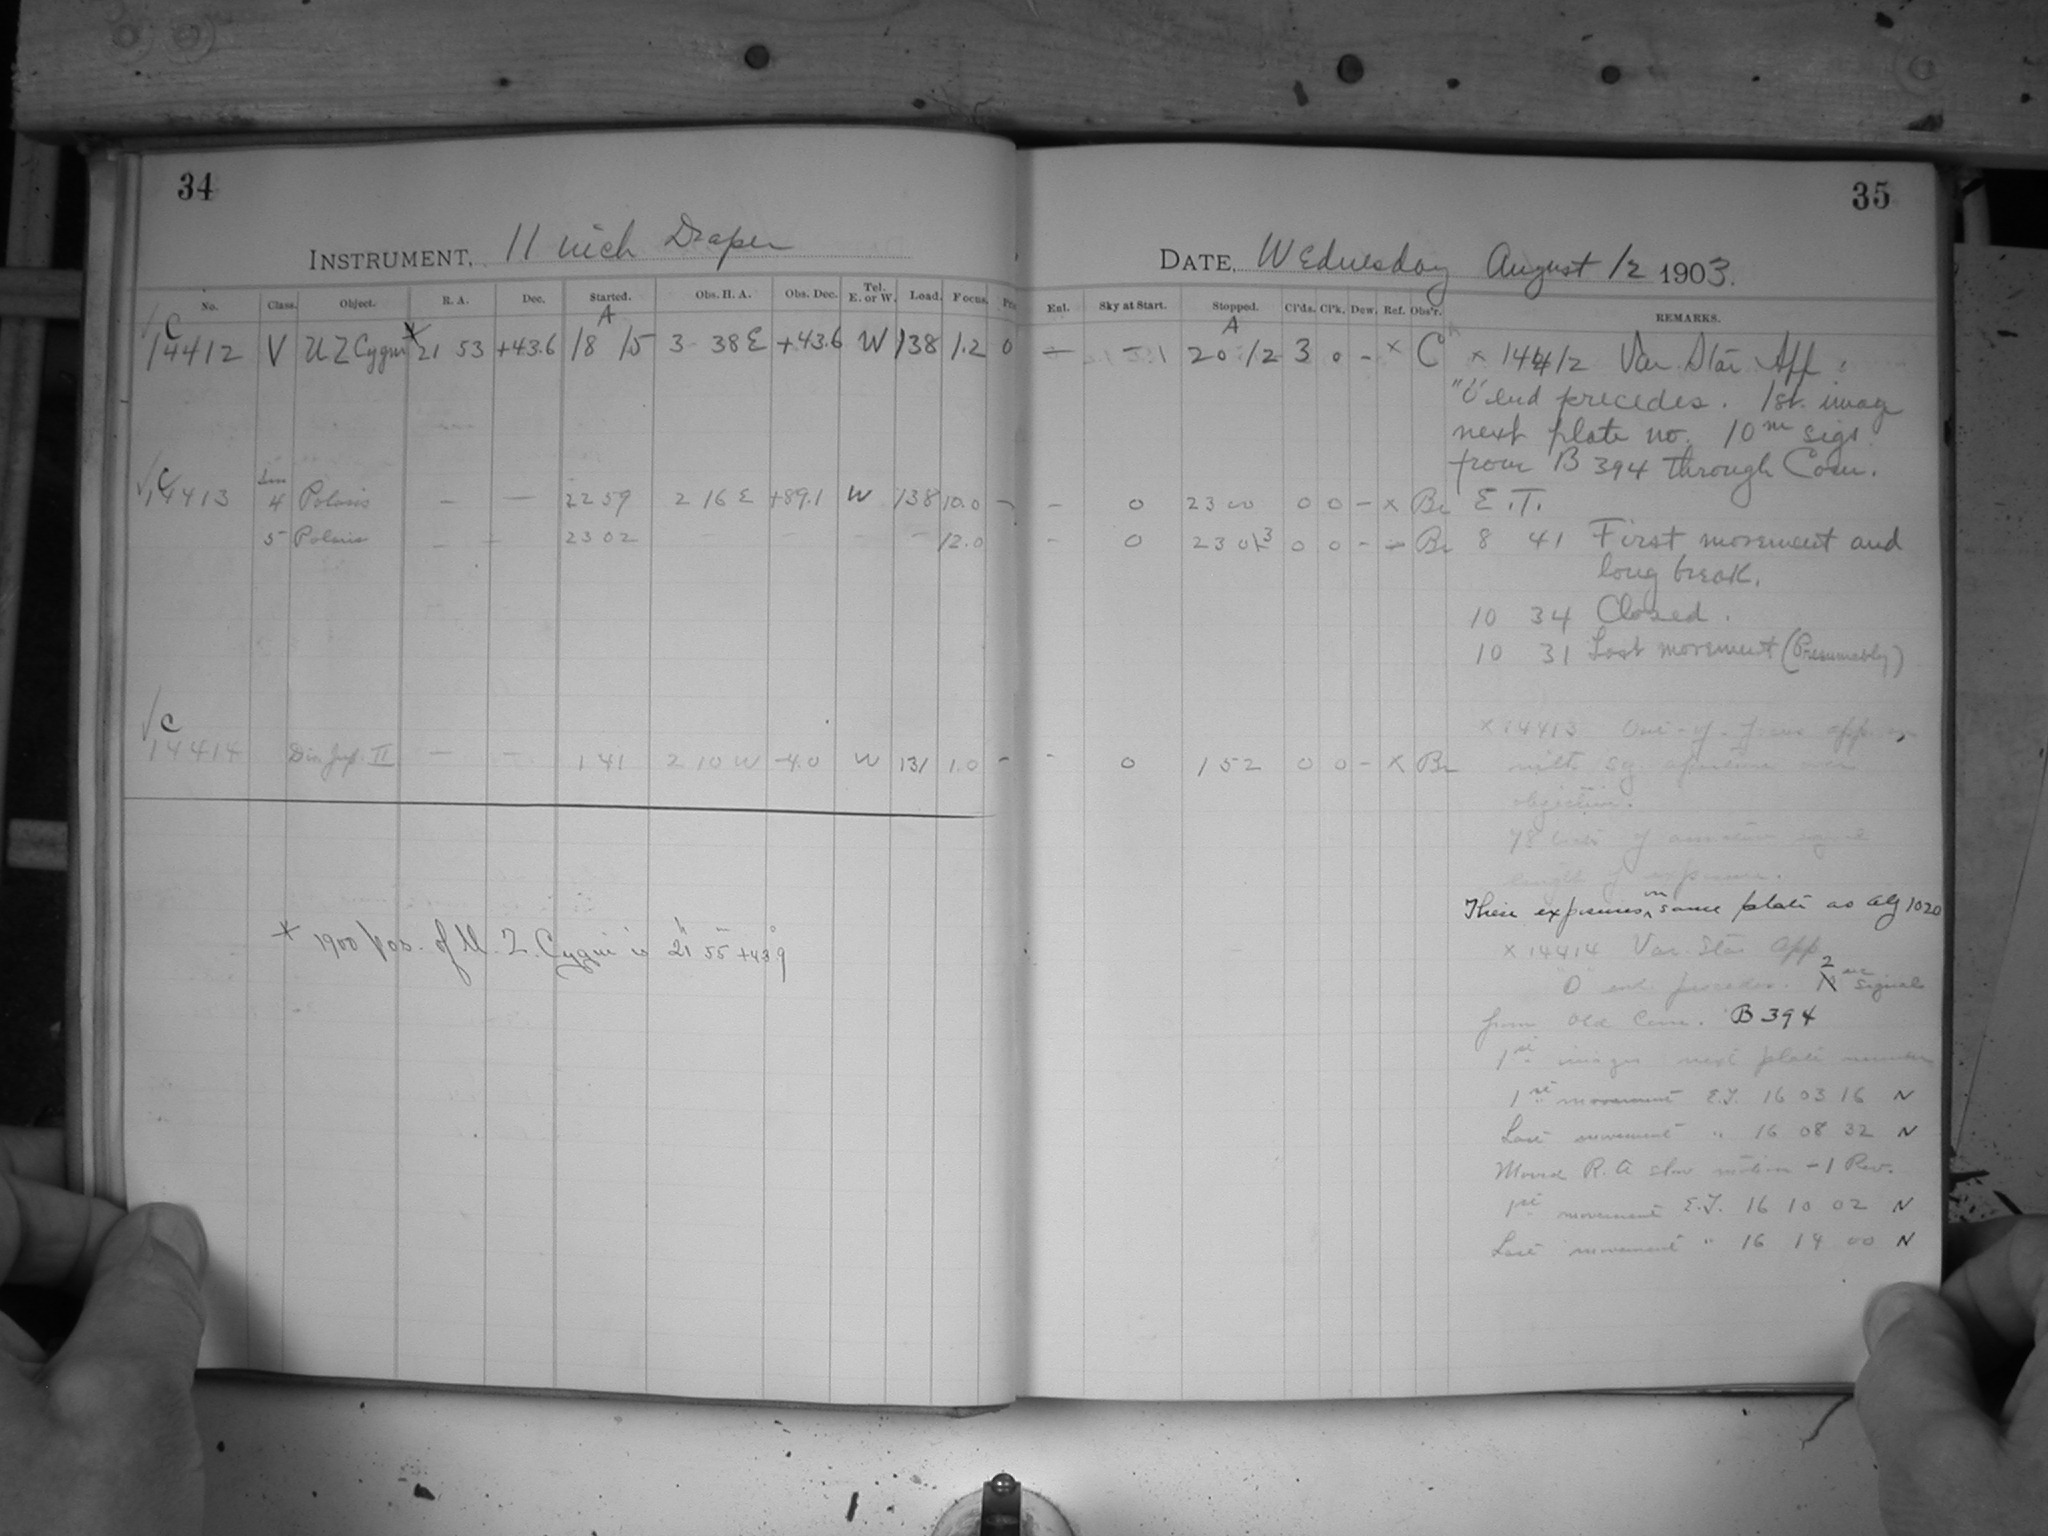 34
INSTRUMENT, 11 inch Draper
No. Class. Object. R. A. Dec. Started. Obs. H. A. Obs. Dec. Tel. E. or W. Load. Focus.
C A
14412 V UZ Cygni * 21 53 +43.6 18 15 3 38 E +43.6 W 138 1.2 0
C
14413 4 Polaris — — 22 59 2 16 E +89.1 W 138 10.0 -
5 Polaris — — 23 02 - - - - 12.0
C
14414 Dir. Jup. II — — 1 41 2 10 W -4.0 W 131 1.0 -
* 1900 pos. of U. Z. Cygni is 21 55 +43.9
35
DATE, Wednesday August 12 1903.
Enl. Sky at Start. Stopped. Cl'ds. Cl'k. Dew. Ref. Obs'r. REMARKS.
A
20 12 3 0 - x C x 14412 Var. Star App.
"O" end precedes. 1st. image
next plate no. 10 m sigs.
from B 394 through Com.
- 0 23 00 0 0 - x Br E. T.
- 0 0 0 - Br 8 41 First movement and
long break.
10 34 Closed.
10 31 Last movement (Presumably)
x 14413 Out-of-focus app.
- - 0 1 52 0 0 - x Br with sq. aperture over
objective.
length of exposure.
These exposures on same plate as
x 14414 Var. Star App.
"O" end precedes. 2 signal
from Old Com. B 394
1st images next plate number
1st movement E.T. 16 03 16 N
Last movement " 16 08 32 N
Moved R. A slow motion - 1 Rev.
1st movement E.T. 16 10 02 N
Last movement " 16 14 00 N